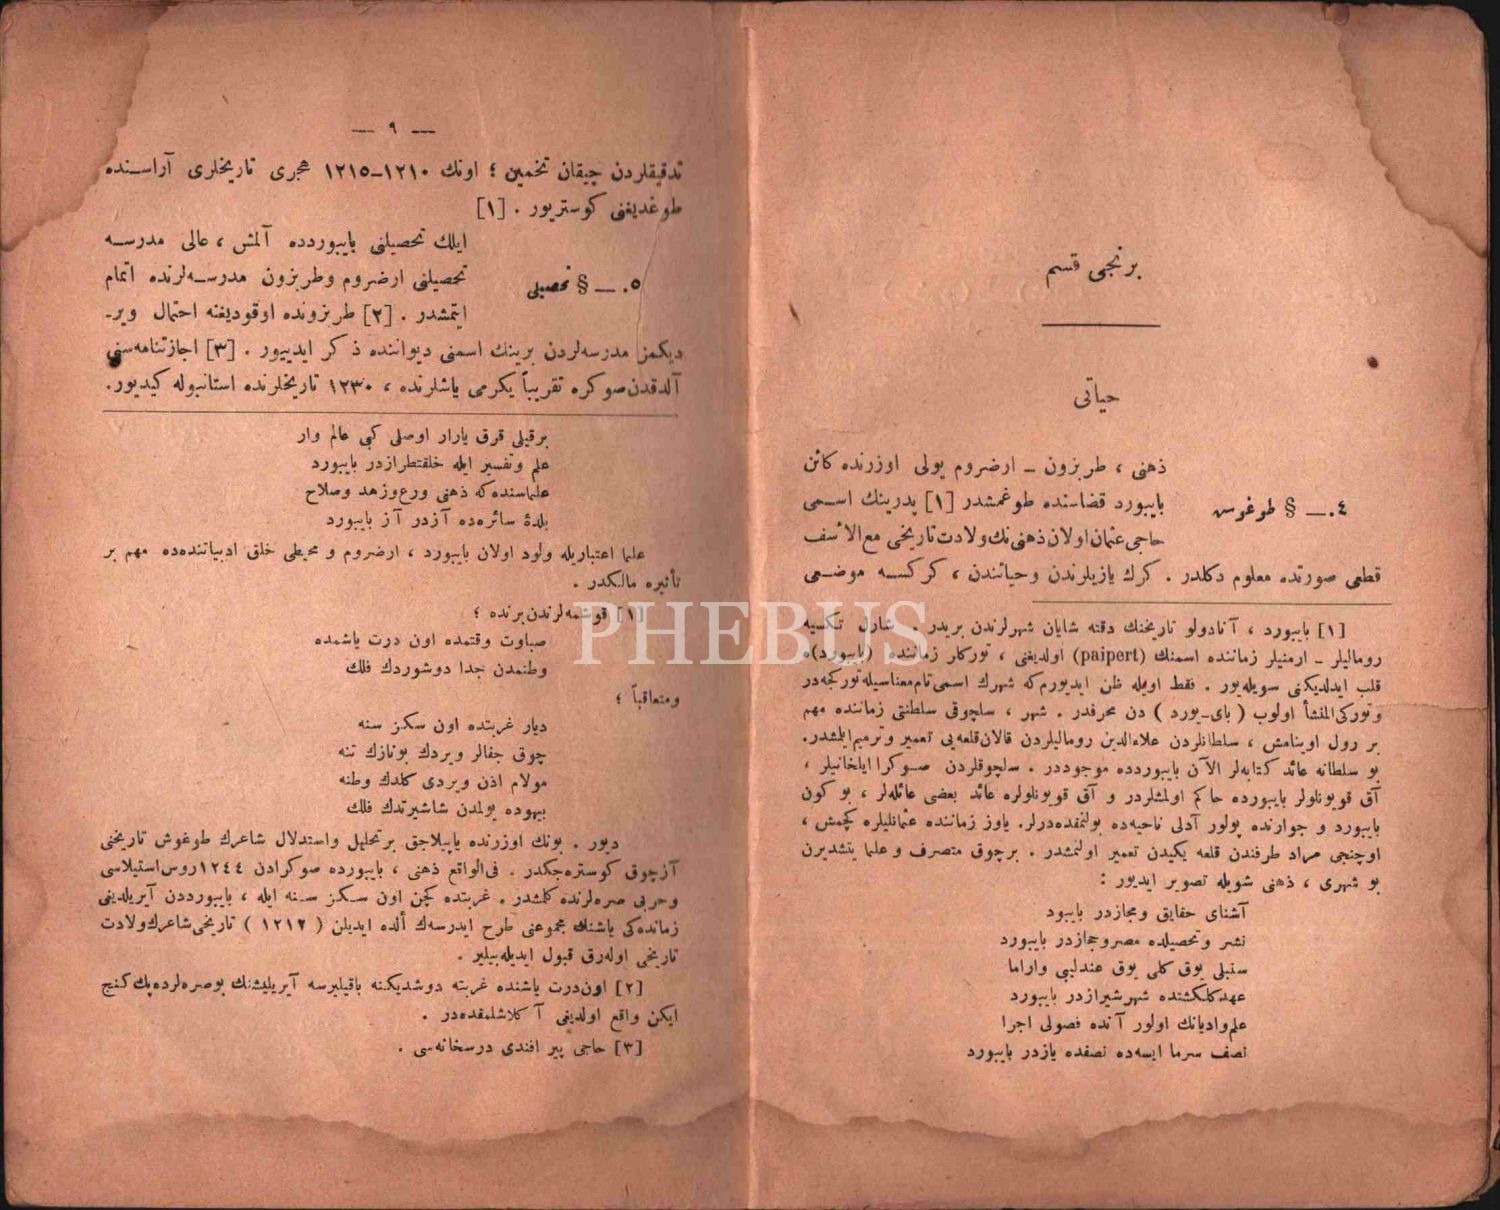 برنجی قسم
حیاتی
ذهنی ، طربزون ـ ارضروم یولی اوزرنده کائن
٤. — § طوغوسی
بایبورد قضاسنده طوغمشدر [١] پدرینك اسمی
حاجی عثمان اولان ذهنی نك ولادت تاریخی مع الاسف
قطعی صورتده معلوم دکلدر . کرك یازیلرندن وحیاتندن ، کرکسه موضعی
[١] بایبورد ، آنادولو تاریخنك دقته شایان شهرلرندن بریدر شارل تکسیه
رومالیلر ـ ارمنیلر زماننده اسمنك (paipert) اولدیغنی ، تورکلر زماننده (بایبورد)ه
قلب ایدلدیکنی سویله‌یور . فقط اویله ظن ایدیورم که شهرك اسمی تام معناسیله تورکجه‌در
وتورکی المنشأ اولوب ( بای ـ یورد ) دن محرفدر . شهر ، سلچوقی سلطنتی زماننده مهم
بر رول اوینامش ، سلطانلردن علاءالدین رومالیلردن قالان قلعه‌یی تعمیر وترمیم ایلمشدر.
بو سلطانه عائد کتابه‌لر الآن بایبوردده موجوددر . سلچوقلردن صوکرا ایلخانیلر ،
آق قویونلولر بایبورده حاکم اولمشلردر و آق قویونلولره عائد بعضی عائله‌لر ، بو کون
بایبورد و جوارنده پولور آدلی ناحیه‌ده بولنمقده‌درلر. یاوز زماننده عثمانلیلره کچمش ،
اوچنجی مراد طرفندن قلعه یکیدن تعمیر اولنمشدر . برچوق متصرف و علما یتشدیرن
بو شهری ، ذهنی شویله تصویر ایدیور :
آشنای حقایق ومجازدر بایبود
نشر وتحصیلده مصروحجازدر بایبورد
سنبلی یوق کلی یوق عندلیبی واراما
عهدکلکشتده شهرشیرازدر بایبورد
علم وادبانك اولور آنده فصولی اجرا
نصف سرما ایسه‌ده نصفده یازدر بایبورد
— ٩ —
تدقیقلردن چیقان تخمین ؛ اونك ١٢١٠ـ١٢١٥ هجری تاریخلری آراسنده
طوغدیغنی کوستریور . [١]
ایلك تحصیلنی بایبوردده آلمش ، عالی مدرسه
٥. — § تحصیلی
تحصیلنی ارضروم وطربزون مدرسه‌لرنده اتمام
ایتمشدر . [٢] طربزونده اوقودیغنه احتمال ویر-
دیکمز مدرسه‌لردن برینك اسمنی دیواننده ذکر ایدییور . [٣] اجازتنامه‌سنی
آلدقدن صوکره تقریباً یکرمی یاشلرنده ، ١٢٣٠ تاریخلرنده استانبوله کیدیور.
برقیلی قرق یارار اوصلی کبی عالم وار
علم وتفسیر ایله خلقتطرازدر بایبورد
علماسنده که ذهنی ورع وزهد وصلاح
بلدهٔ سائره‌ده آزدر آز بایبورد
علما اعتباریله ولود اولان بایبورد ، ارضروم و محیطی خلق ادبیاتنده‌ده مهم بر
تأثیره مالکدر .
[١] قوشمه‌لرندن برنده ؛
صباوت وقتمده اون درت یاشمده
وطنمدن جدا دوشوردك فلك
ومتعاقباً ؛
دیار غربتده اون سکز سنه
چوق جفالر ویردك بو نازك تنه
مولام اذن ویردی کلدك وطنه
بیهوده یولمدن شاشیرتدك فلك
دیور . بونك اوزرنده یاپیلاجق برتحلیل واستدلال شاعرك طوغوش تاریخنی
آزچوق کوستره‌جکدر . فی‌الواقع ذهنی ، بایبورده صوکرادن ١٢٤٤ روس استیلاسی
وحربی صره‌لرنده کلمشدر . غربتده کچن اون سکز سنه ایله ، بایبورددن آیریلدیغی
زمانده‌کی یاشنك مجموعنی طرح ایدرسه‌ك ألده ایدیلن ( ١٢١٢ ) تاریخی شاعرك ولادت
تاریخی اوله‌رق قبول ایدیله‌بیلیر .
[٢] اون درت یاشنده غربته دوشدیکنه باقیلیرسه آیریلیشنك بوصره‌لرده پك کنج
ایکن واقع اولدیغی آ کلاشلمقده‌در .
[٣] حاجی پیر افندی درسخانه‌سی .
PHEBUS